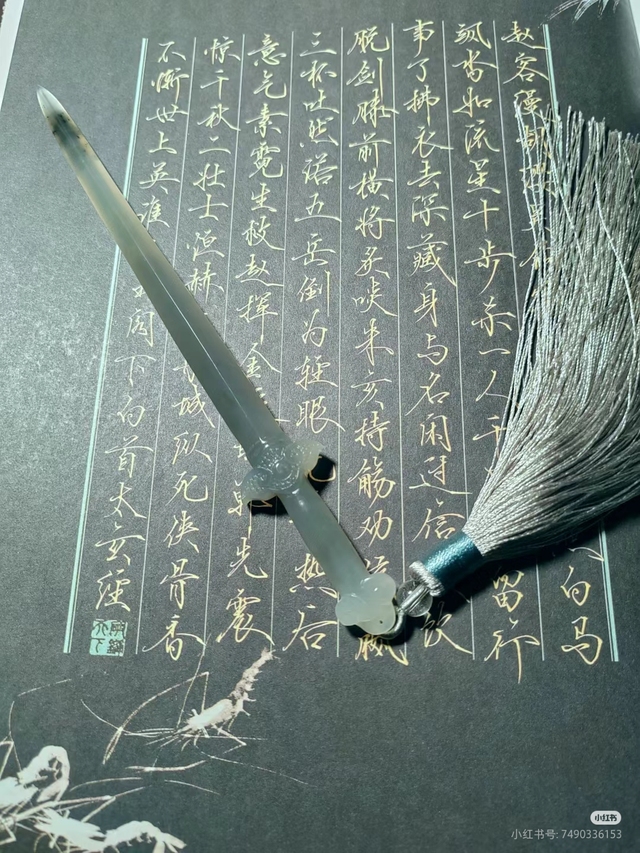 赵客缦胡缨吴白马
飒沓如流星十步杀一人千留行
事了拂衣去深藏身与名闲过信饮
脱剑膝前横将炙啖朱亥持觞劝嬴
三杯吐然诺五岳倒为轻眼热后
意气素霓生救赵挥金郸先震
惊千秋二壮士烜赫城纵死侠骨香
不惭世上英谁阁下白首太玄经
小红书
小红书号: 7490336153